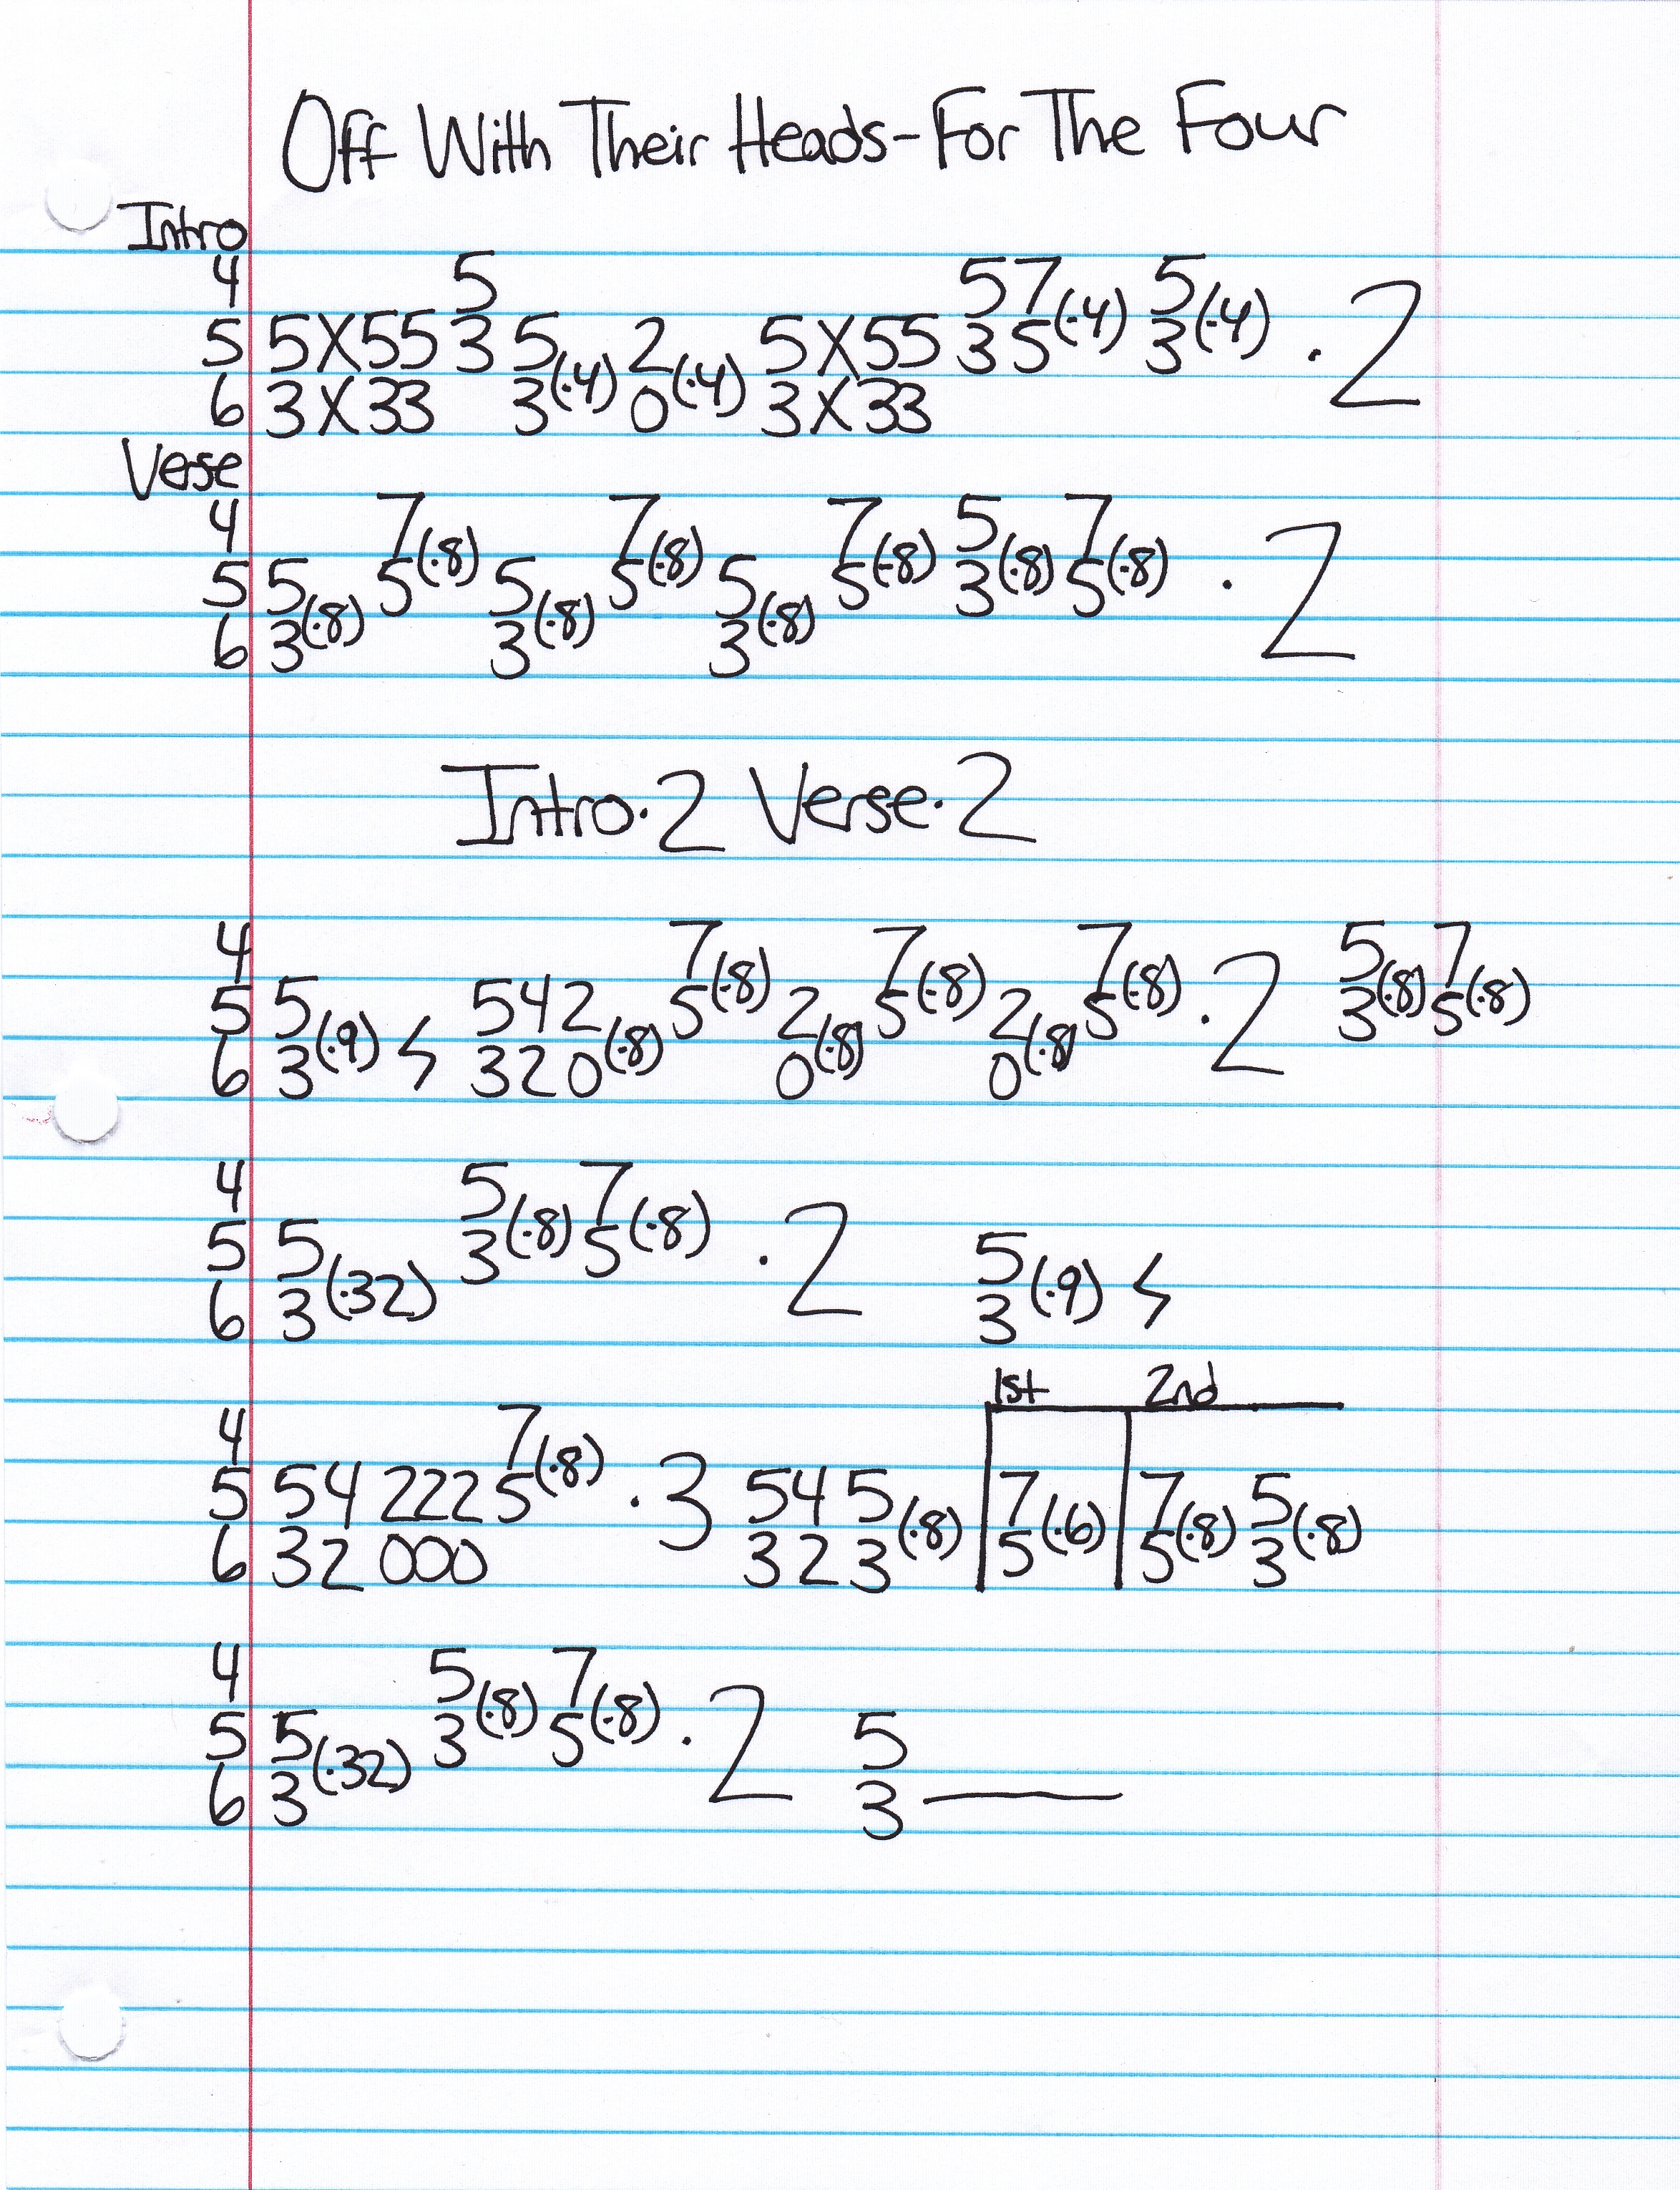 Off With Their Heads-For The Four
Intro
4 5 57(·4) 5(·4)
5 5X55 3 5(·4) 2(·4) 5X55 35 3 ·2
6 3X33 3 0 3X33
Verse
4 7(·8) 7(·8) 7(·8) 5(·8) 7(·8)
5 5(·8) 5 5(·8) 5 5(·8) 5 3 5 ·2
6 3 3 3
Intro·2 Verse·2
4 7(·8) 7(·8) 7(·8) 5(·8) 7(·8)
5 5(·9) 542(·8) 5 2(·8) 5 2(·8) 5 ·2 3 5
6 3 320 0 0
4 5(·8) 7(·8)
5 5(·32) 3 5 ·2 5(·9)
6 3 3
1st 2nd
4 7(·8)
5 54 222 5 ·3 545(·8) 7(·6) 7(·8) 5(·8)
6 32 000 323 5 5 3
4 5(·8) 7(·8)
5 5(·32) 3 5 ·2 5
6 3 3